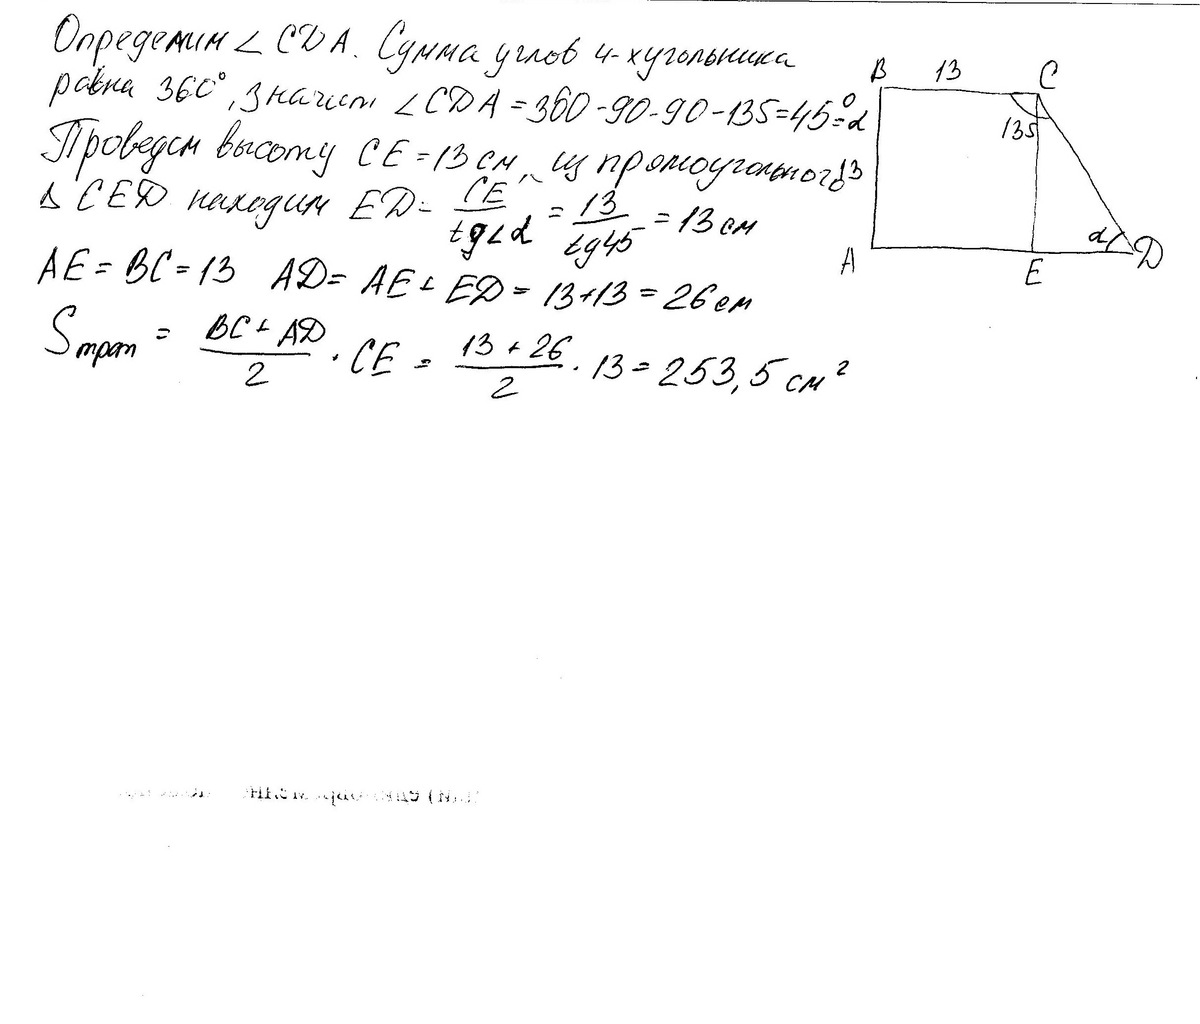 Определим ∠ CDA. Сумма углов 4-хугольника
равна 360°, значит ∠CDA = 360-90-90-135=45°=α
Проведем высоту CE = 13 см, из прямоугольного
Δ CED находим ED = CE / tg∠α = 13 / tg45 = 13 см
AE = BC = 13 AD = AE + ED = 13+13 = 26 см
Sтрап = BC + AD / 2 · CE = 13 + 26 / 2 · 13 = 253,5 см²
B 13 C
135
13
α
A E D